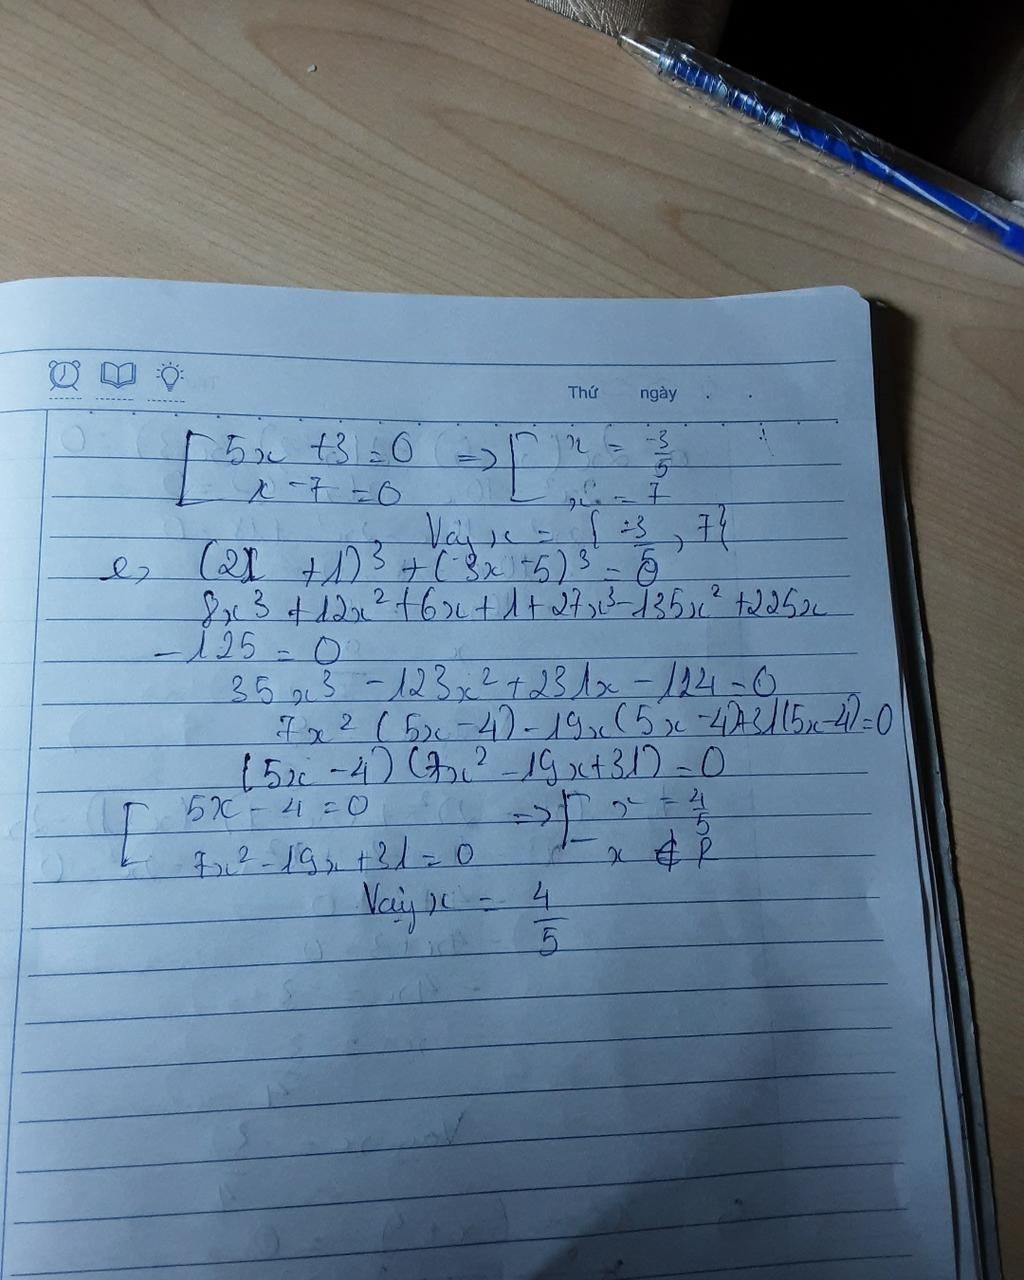 Thứ ngày
[ 5x + 3 = 0 => [ x = -3/5
x - 7 = 0 x = 7
Vậy x = { -3/5 , 7 {
e, (2x + 1)³ + (3x - 5)³ = 0
8x³ + 12x² + 6x + 1 + 27x³ - 135x² + 225x
- 125 = 0
35x³ - 123x² + 231x - 124 = 0
7x² (5x - 4) - 19x (5x - 4) + 31 (5x - 4) = 0
(5x - 4) (7x² - 19x + 31) = 0
[ 5x - 4 = 0 => [ x = 4/5
7x² - 19x + 31 = 0 x ∉ R
Vậy x = 4/5